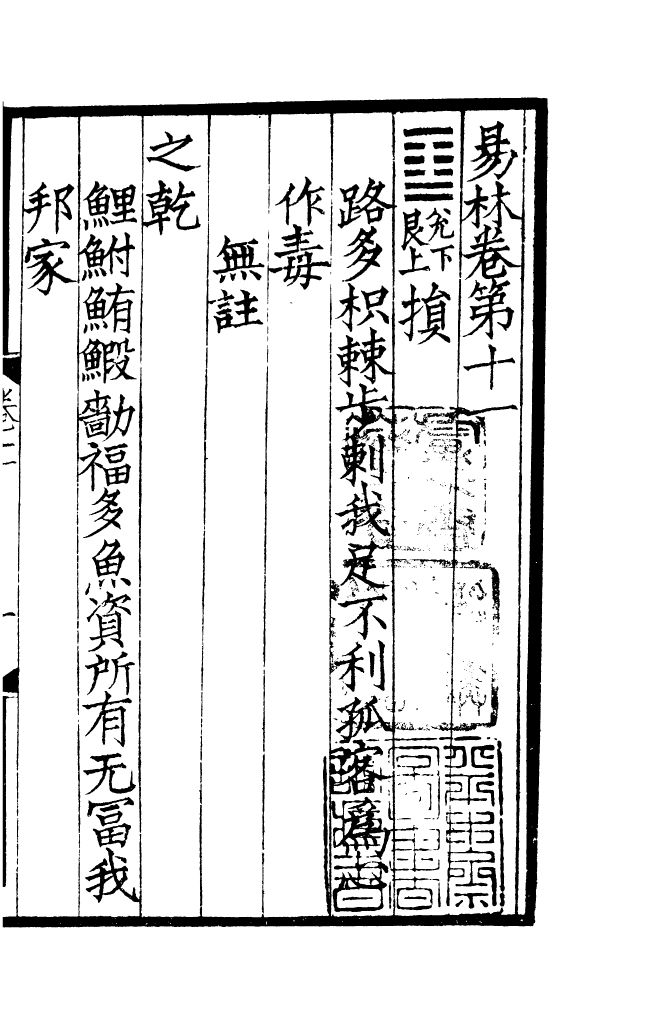 易林卷第十一
䷨兌下艮上損
路多枳棘步刺我足不利孤客爲心
作毒
無註
之乾
鯉鮒鮪鰕福多魚資所有无冨我
邦家